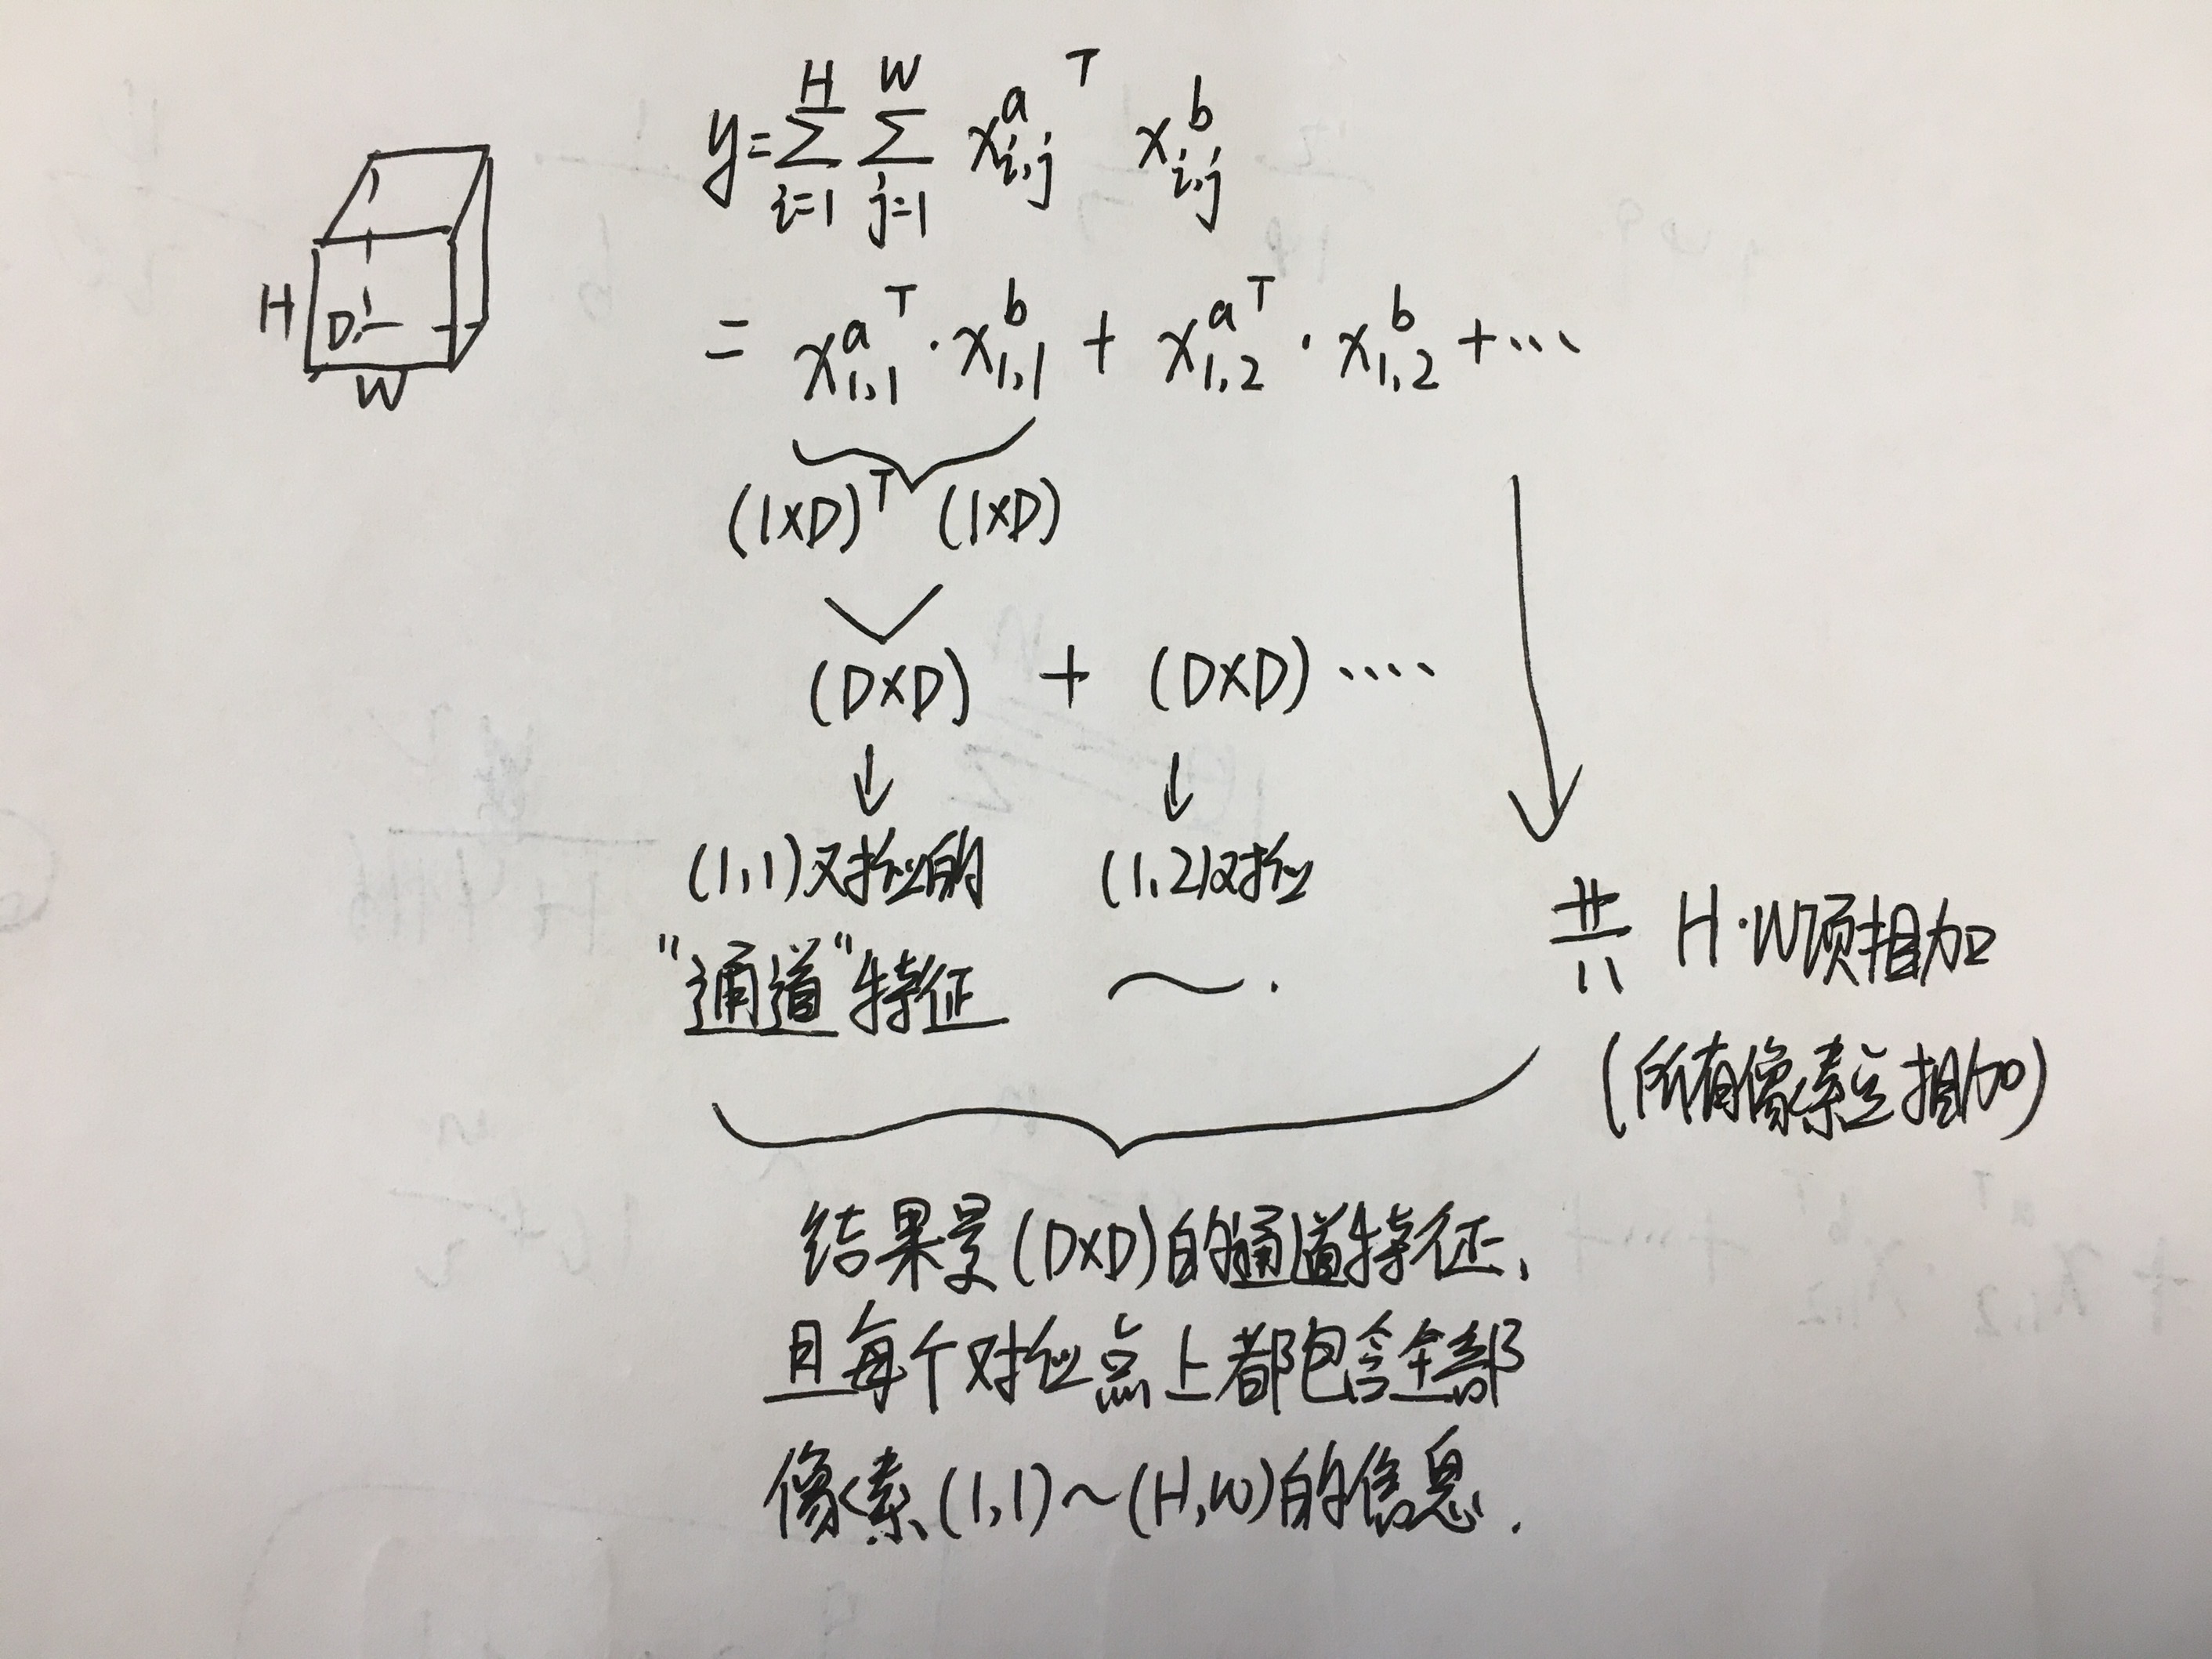 y = \sum_{i=1}^{H} \sum_{j=1}^{W} x_{i,j}^{a T} x_{i,j}^{b}
H
D
W
= x_{1,1}^{a T} · x_{1,1}^{b} + x_{1,2}^{a T} · x_{1,2}^{b} + ...
(1×D)^T (1×D)
(D×D) + (D×D) ....
(1,1)对应的 (1,2)对应
"通道"特征 ～.
共 H·W项相加
(所有像素点相加)
结果是(D×D)的通道特征,
且每个对应点上都包含全部
像素(1,1)～(H,W)的信息.